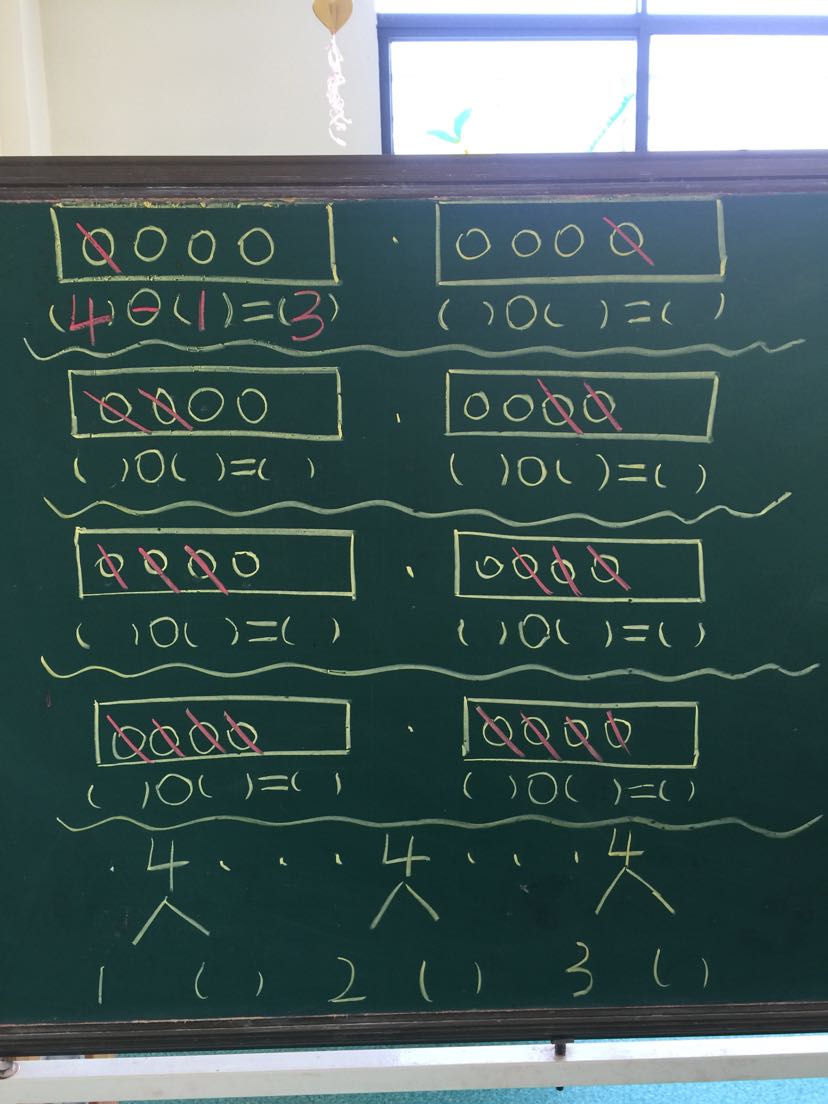 (4)-(1)=(3) ( )○( )=( )
( )○( )=( ) ( )○( )=( )
( )○( )=( ) ( )○( )=( )
( )○( )=( ) ( )○( )=( )
4 4 4
1 ( ) 2 ( ) 3 ( )